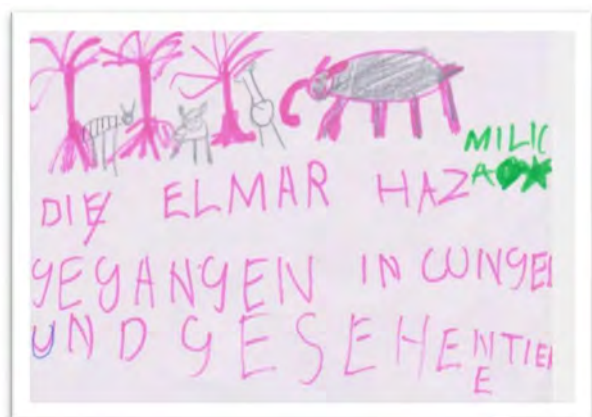 MILIC
A
DIE ELMAR HAZ
GEGANGEN IN CUNGEL
UND GESEHEN TIER
E